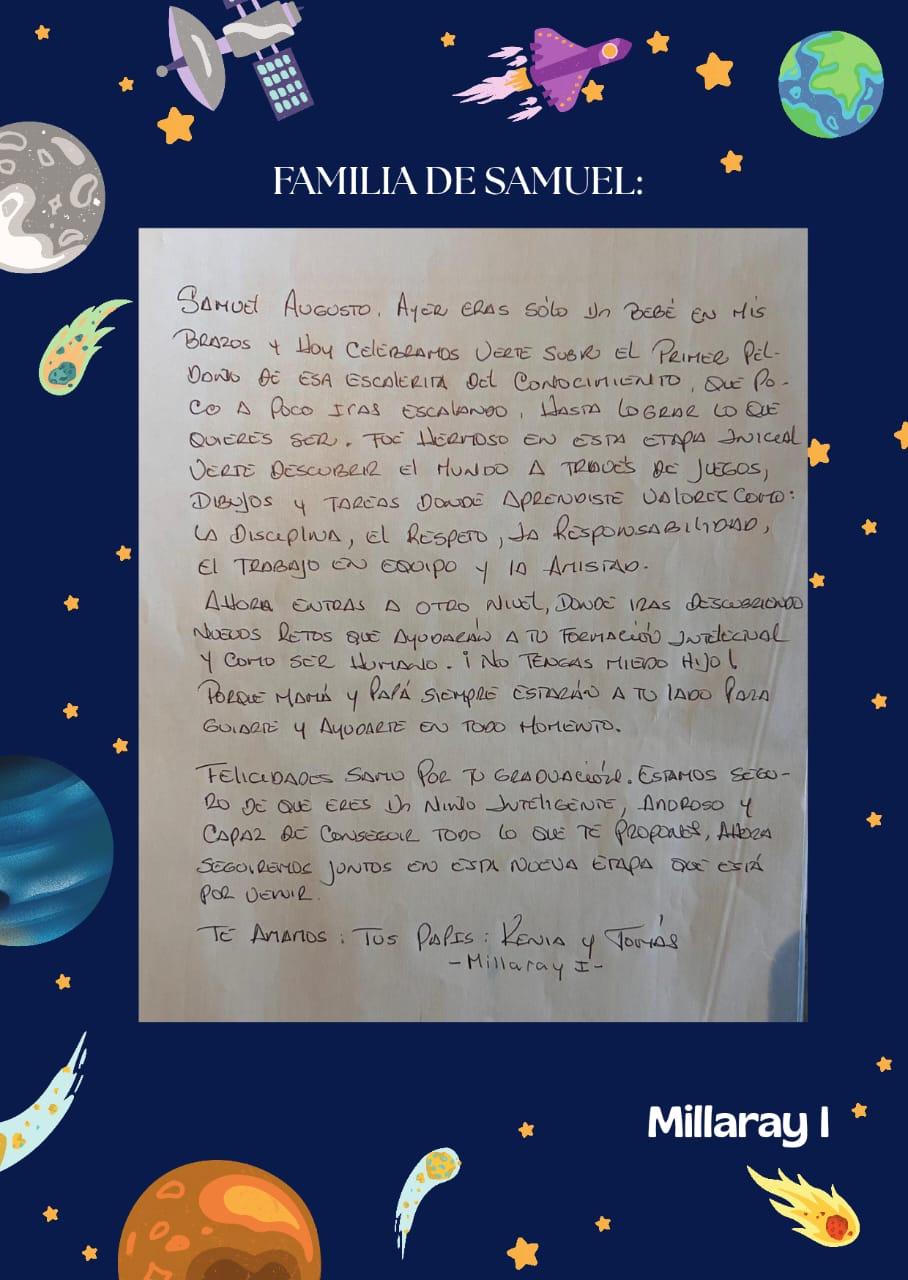 FAMILIA DE SAMUEL:
SAMUEL AUGUSTO. AYER ERAS SÓLO UN BEBÉ EN MIS
BRAZOS Y HOY CELEBRAMOS VERTE SUBIR EL PRIMER PEL-
DAÑO DE ESA ESCALERITA DEL CONOCIMIENTO, QUE PO-
CO A POCO IRAS ESCALANDO, HASTA LOGRAR LO QUE
QUIERES SER. FUE HERMOSO EN ESTA ETAPA INICIAL
VERTE DESCUBRIR EL MUNDO A TRAVÉS DE JUEGOS,
DIBUJOS Y TAREAS DONDE APRENDISTE VALORES COMO:
LA DISCIPLINA, EL RESPETO, LA RESPONSABILIDAD,
EL TRABAJO EN EQUIPO Y LA AMISTAD.
AHORA ENTRAS A OTRO NIVEL, DONDE IRAS DESCUBRIENDO
NUEVOS RETOS QUE AYUDARÁN A TU FORMACIÓN INTELECTUAL
Y COMO SER HUMANO. ¡NO TENGAS MIEDO HIJO!
PORQUE MAMÁ Y PAPÁ SIEMPRE ESTARÁN A TU LADO PARA
GUIARTE Y AYUDARTE EN TODO MOMENTO.
FELICIDADES SAMU POR TU GRADUACIÓN. ESTAMOS SEGU-
RO DE QUE ERES UN NIÑO INTELIGENTE, AMOROSO Y
CAPAZ DE CONSEGUIR TODO LO QUE TE PROPONES, AHORA
SEGUIREMOS JUNTOS EN ESTA NUEVA ETAPA QUE ESTÁ
POR VENIR.
TE AMAMOS: TUS PAPIS: KENIA Y TOMÁS
-Millaray I-
Millaray I